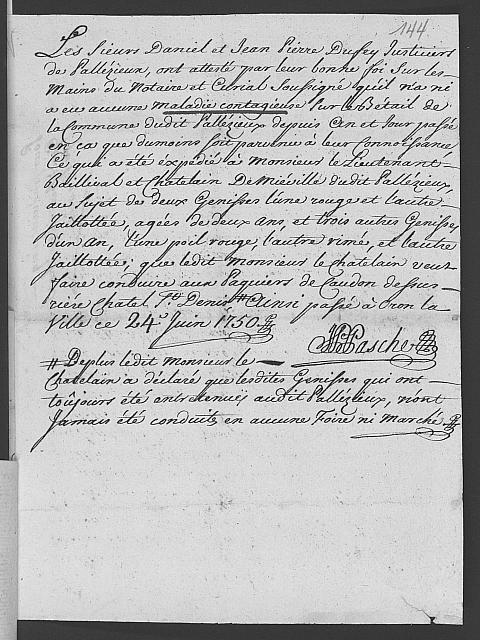 144
Les Sieurs Daniel et Jean Pierre Dufey Justiciers
de Pallézieux, ont attesté par leur bonne foi Sur les
Mains du Notaire et Curial Soussigné qu'il n'a ni
a eu aucune maladie contagieuse Sur le Bétail de
la Commune dudit Pallézieux depuis an et Jour passé
en ça que dumoins soit parvenu à leur Connoissance
Ce qui a été expedié à Monsieur le Lieutenant
Baillival et Chatelain DeMiéville dudit Pallézieux,
au Sujet de deux Genisses l'une rouge et l'autre
Jaillottée, agées de deux Ans, et trois autres Genisses
d'un An, l'une poil rouge, l'autre vimé, et l'autre
Jaillottée; que ledit Monsieur le Chatelain veut
faire conduire aux Paquiers de Caudon dessur
riére Chatel St Denis # Ainsi passé à Oron la
Ville ce 24e Juin 1750
Pasche
# De plus ledit Monsieur le
Chatelain a déclaré que lesdites Genisses qui ont
toûjours été entretenues audit Pallézieux, n'ont
Jamais été conduites en aucune Foire ni Marché